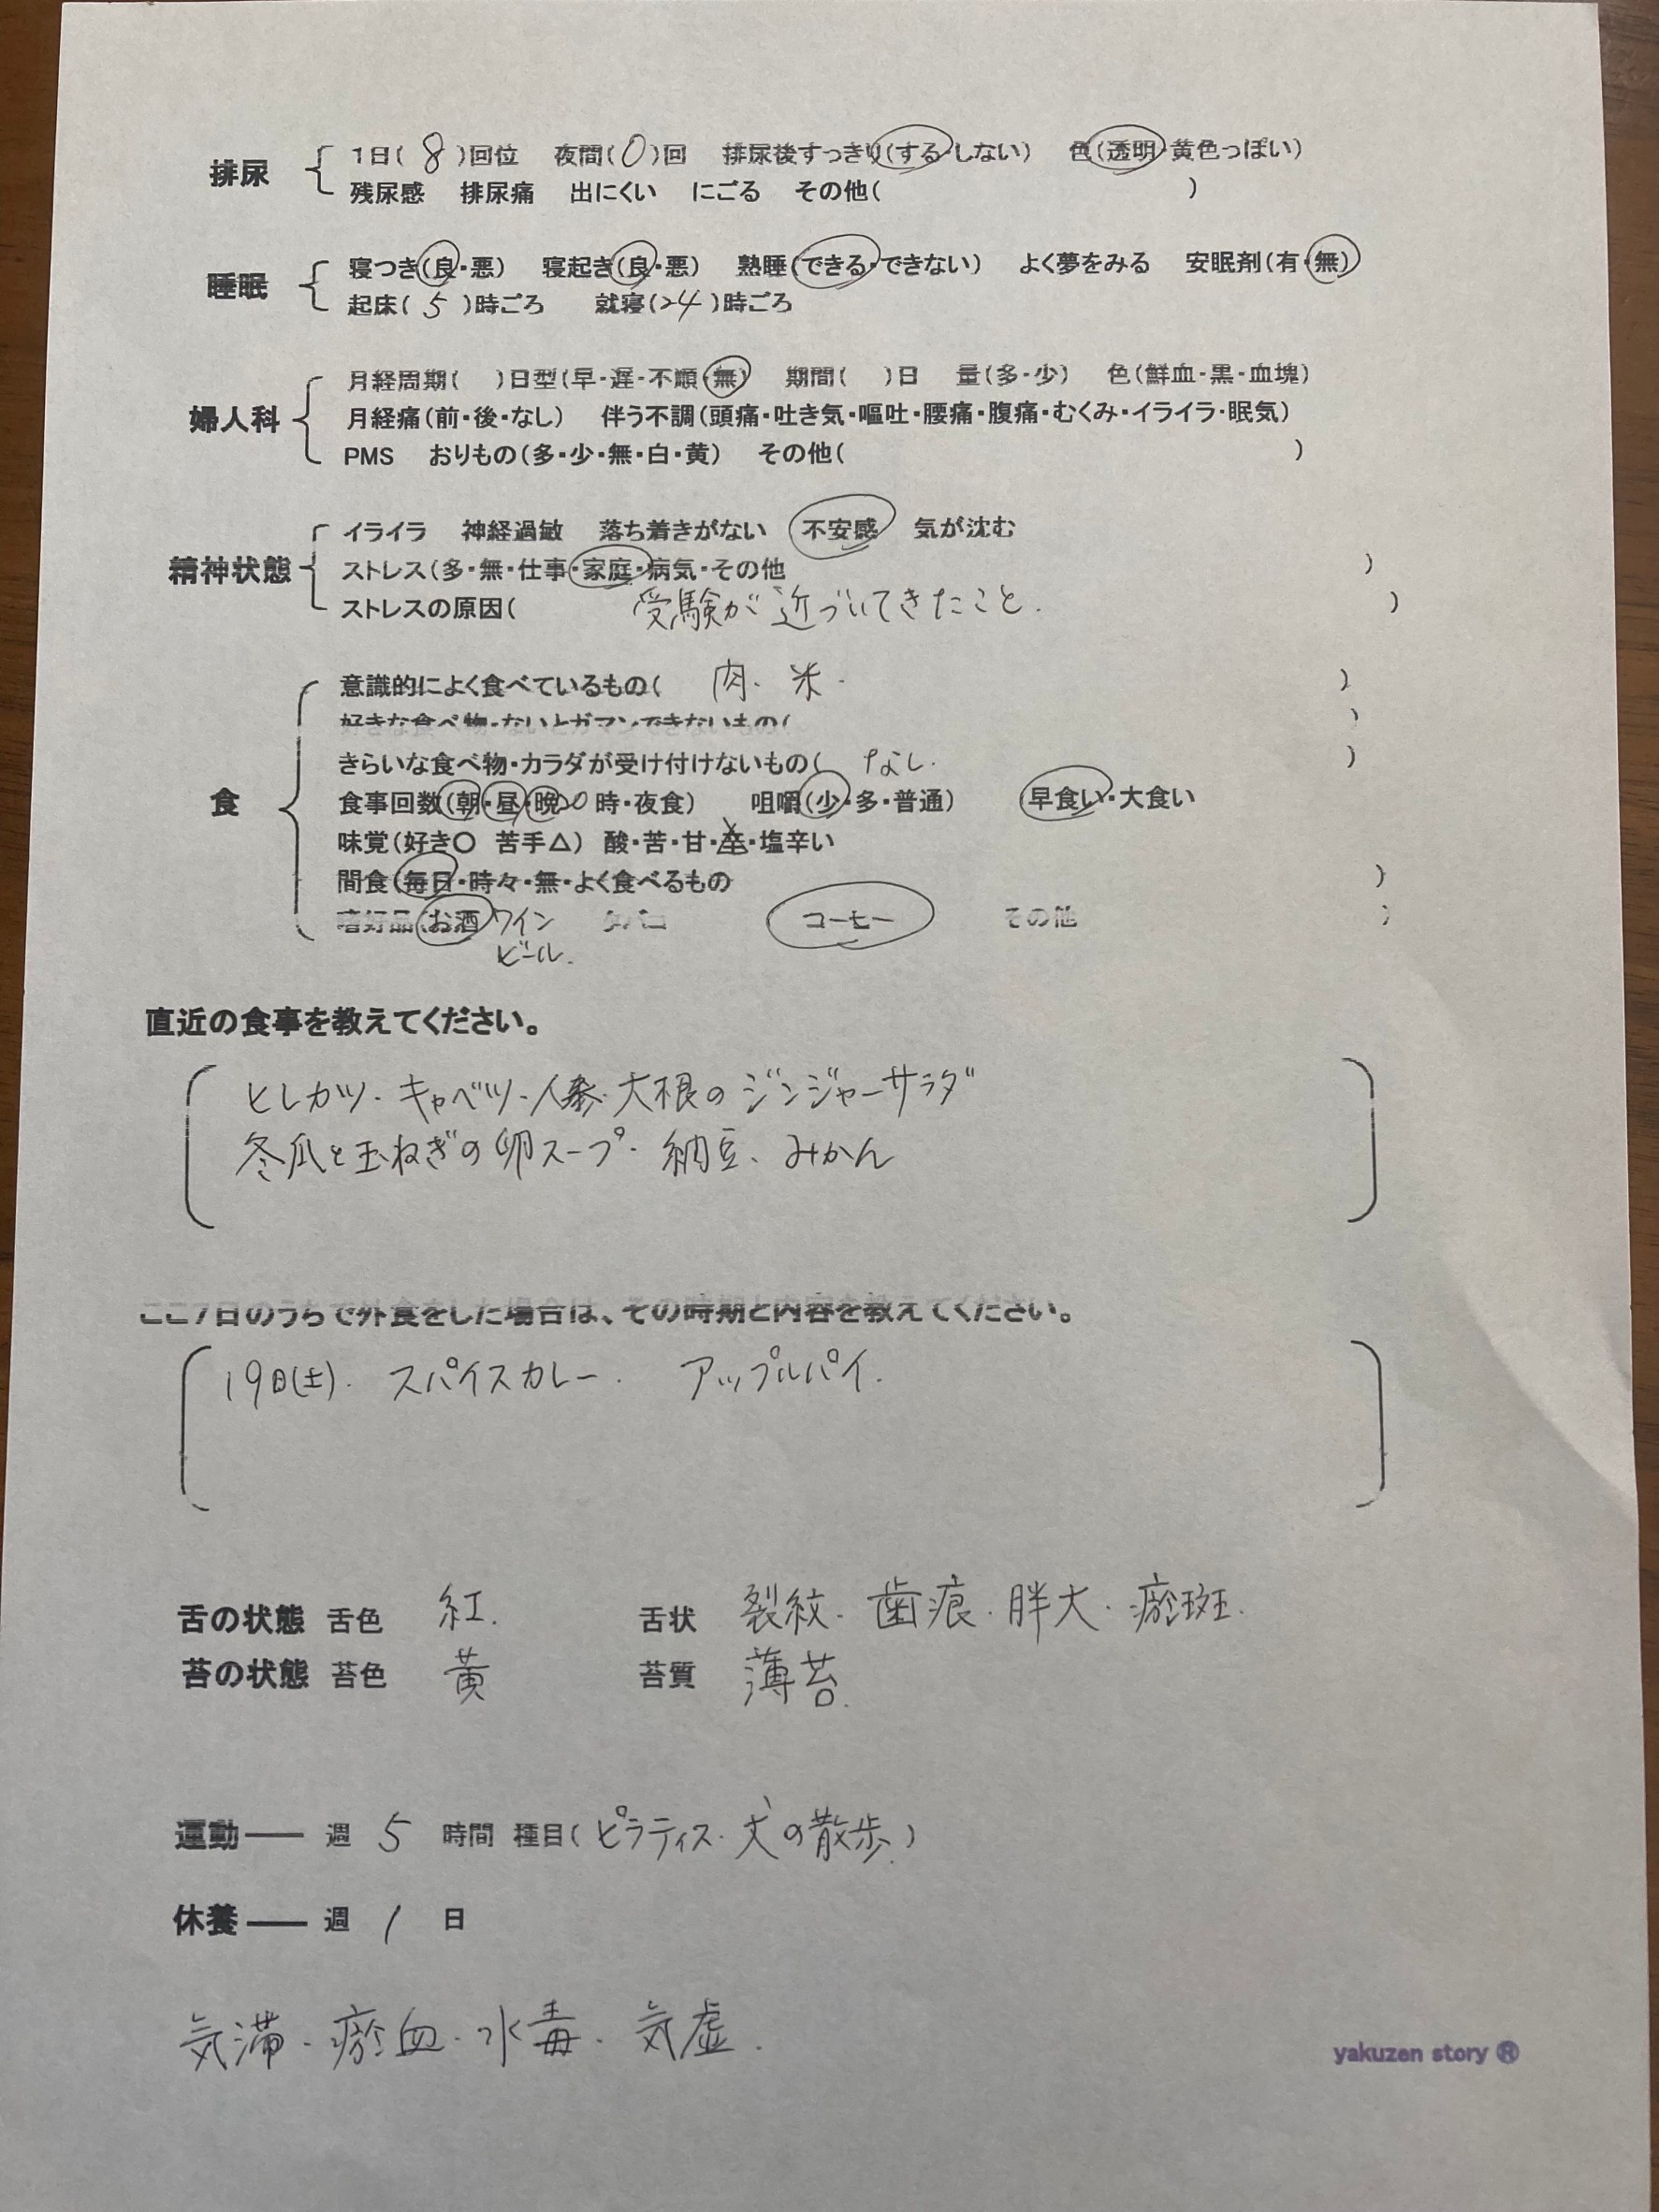 排尿 1日( 8 )回位 夜間( 0 )回 排尿後すっきり(する・しない) 色(透明・黄色っぽい)
残尿感 排尿痛 出にくい にごる その他( )
睡眠 寝つき(良・悪) 寝起き(良・悪) 熟睡(できる・できない) よく夢をみる 安眠剤(有・無)
起床( 5 )時ごろ 就寝( 24 )時ごろ
婦人科 月経周期( )日型(早・遅・不順・無) 期間( )日 量(多・少) 色(鮮血・黒・血塊)
月経痛(前・後・なし) 伴う不調(頭痛・吐き気・嘔吐・腰痛・腹痛・むくみ・イライラ・眠気)
PMS おりもの(多・少・無・白・黄) その他( )
精神状態 イライラ 神経過敏 落ち着きがない 不安感 気が沈む
ストレス(多・無・仕事・家庭・病気・その他 )
ストレスの原因( 受験が近づいてきたこと. )
食 意識的によく食べているもの( 肉. 米. )
好きな食べ物・ないとガマンできないもの( )
きらいな食べ物・カラダが受け付けないもの( なし. )
食事回数(朝・昼・晩 20 時・夜食) 咀嚼(少・多・普通) 早食い・大食い
味覚(好き〇 苦手△) 酸・苦・甘・辛・塩辛い
間食(毎日・時々・無・よく食べるもの )
嗜好品(お酒 ワイン タバコ コーヒー その他 )
ビール.
直近の食事を教えてください。
ヒレカツ. キャベツ・人参・大根のジンジャーサラダ
冬瓜と玉ねぎの卵スープ. 納豆. みかん
ここ7日のうちで外食をした場合は、その時期と内容を教えてください。
19日(土). スパイスカレー. アップルパイ.
舌の状態 舌色 紅. 舌状 裂紋. 歯痕. 胖大. 瘀斑.
苔の状態 苔色 黄 苔質 薄苔.
運動 ― 週 5 時間 種目( ピラティス. 犬の散歩. )
休養 ― 週 1 日
気滞. 瘀血. 水毒. 気虚.
yakuzen story ®